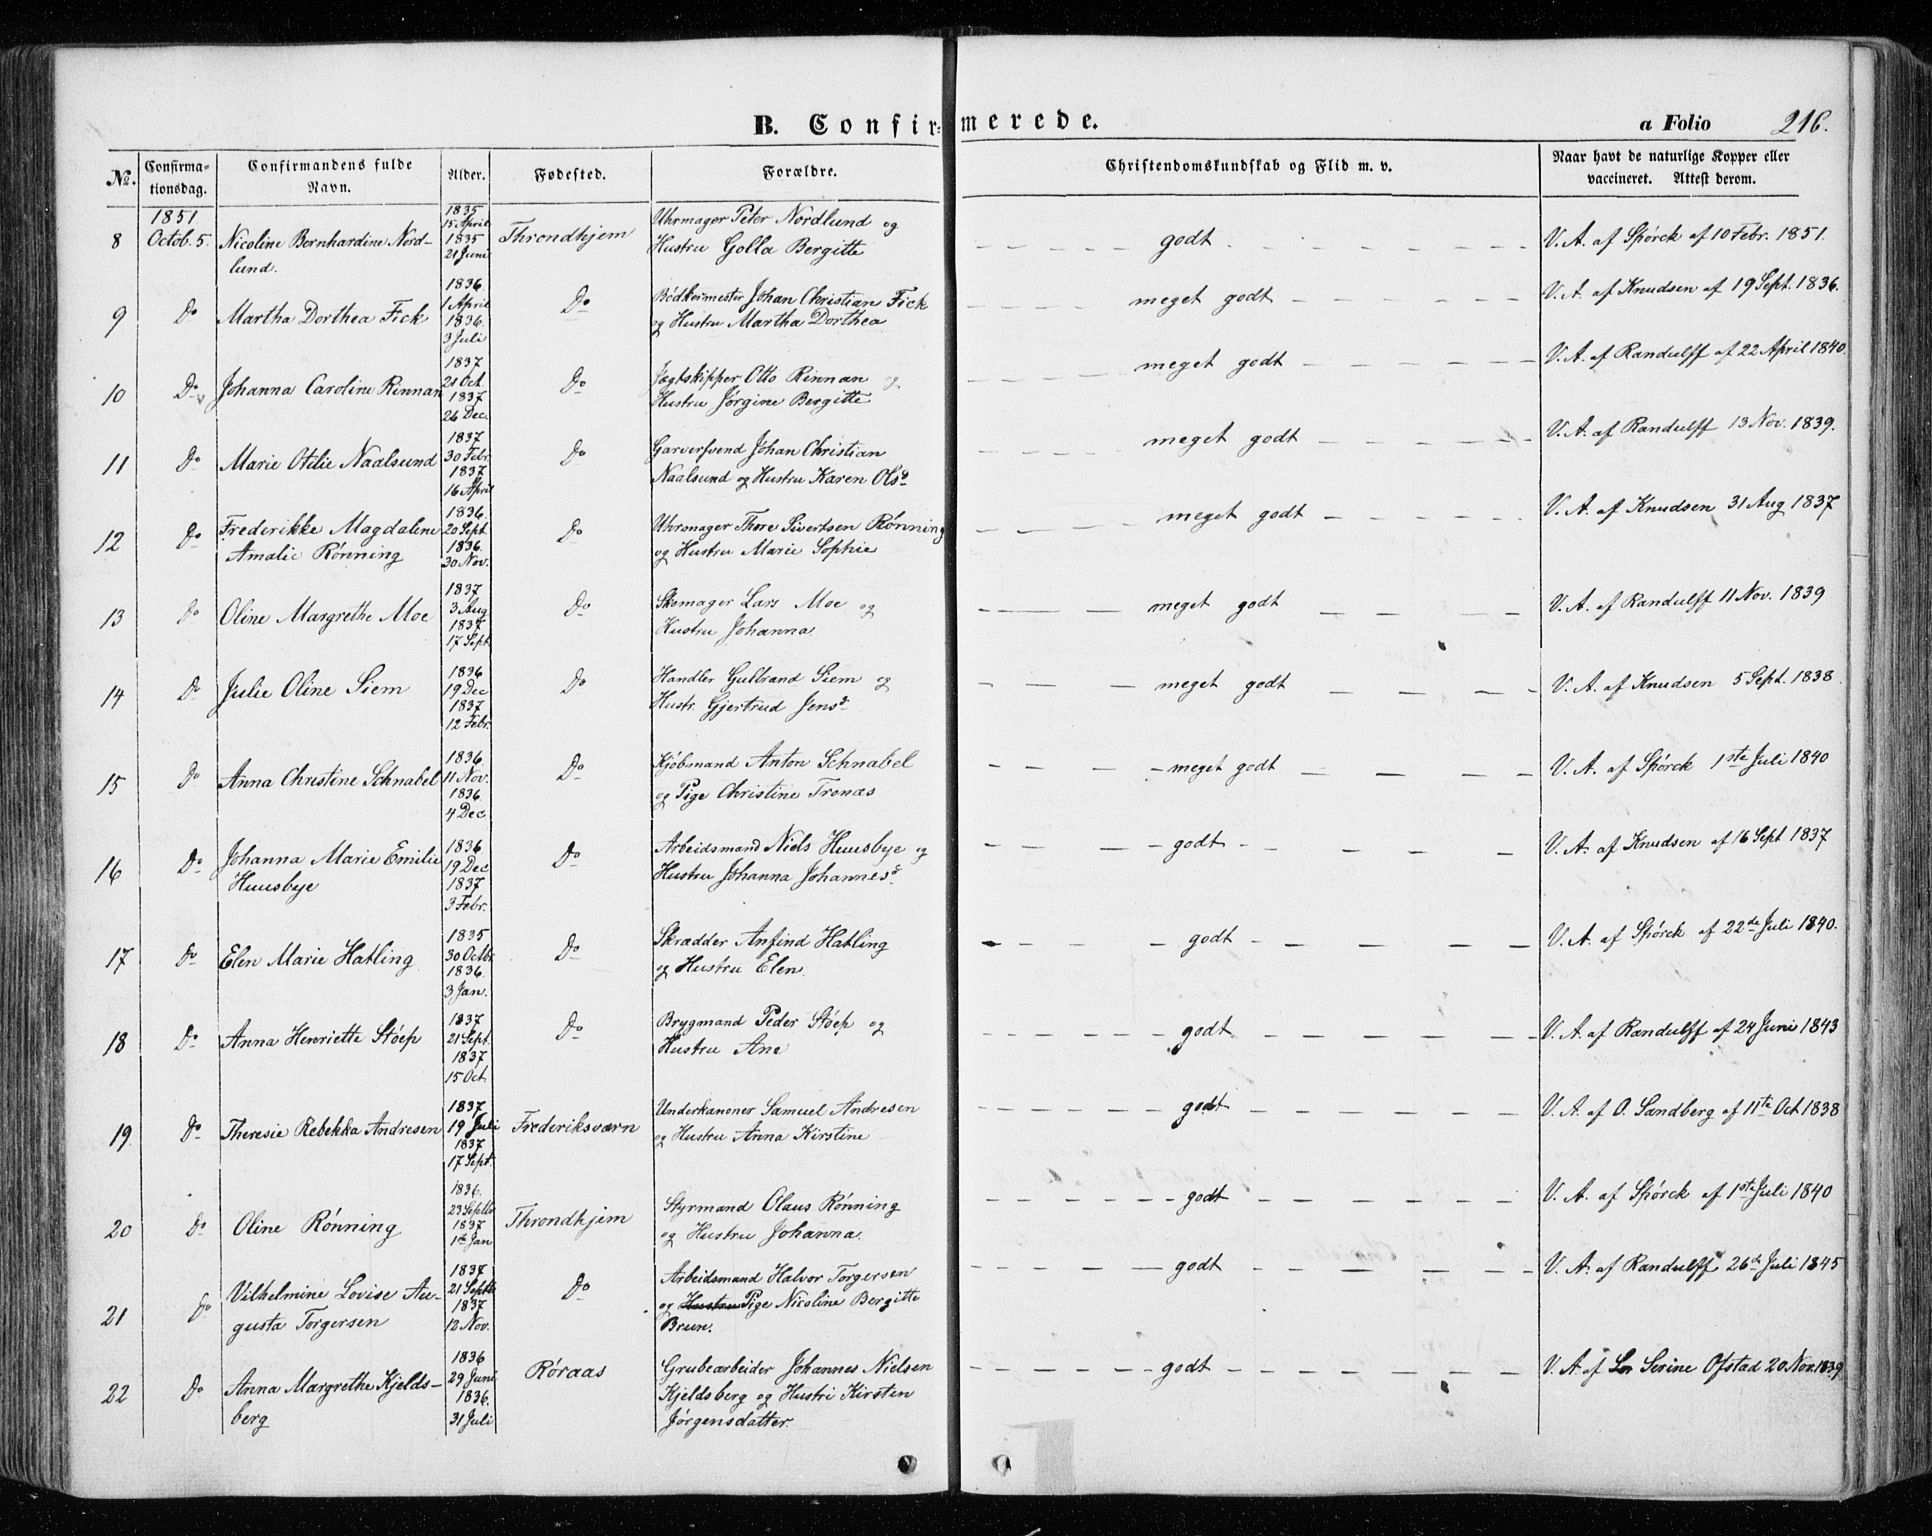 B. Confirmerede.
a Folio 216.
No. Confirmationsdag. Confirmandens fulde Navn. Alder. Fødested. Forældre. Christendomskundskab og Flid m. v. Naar havt de naturlige Kopper eller vaccineret. Attest derom.
1851
8 Octob. 5. Nicoline Bernhardine Nordlund. 1835 15 April 1835 21 Juni Throndhjem Uhrmager Peter Nordlund og Hustru Golla Bergitte godt V. A. af Spörck af 10 Febr. 1851.
9 Do Martha Dorthea Fick 1836 1 April 1836. 3 Juli Do Bödkermester Johan Christian Fick og Hustru Martha Dorthea meget godt V. A. af Knudsen af 19 Sept. 1836.
10 Do Johanna Caroline Rinnan 1837 21 Oct. 1837 26 Dec. Do Jægtskipper Otto Rinnan og Hustru Jörgine Bergitte meget godt V. A. af Randulff af 22 April 1840.
11 Do Marie Otilie Naalsund 1837 30 Febr. 1837 16 April Do Garversvend Johan Christian Naalsund og Hustru Karen Olsd meget godt V. A. af Randulff 13 Nov. 1839.
12 Do Frederikke Magdalene Amalie Rönning 1836. 20 Sept. 1836. 30 Nov. Do Uhrmager Thore Sivertsen Rönning og Hustru Marie Sophie meget godt V. A. af Knudsen 31 Aug 1837
13 Do Oline Margrethe Moe 1837 3 Aug 1837 17 Sept. Do Skomager Lars Moe og Hustru Johanna meget godt V. A. af Randulff 11 Nov. 1839
14 Do Julie Oline Siem 1836 19 Dec 1837 12 Febr. Do Handler Gulbrand Siem og Hustr. Gjertrud Jensd meget godt V. A. af Knudsen 5 Sept. 1838.
15 Do Anna Christine Schnabel 1836. 11 Nov. 1836 4 Dec Do Kjöbmand Anton Schnabel og Pige Christine Tronæs meget godt V. A. af Spörck 1ste Juli 1840
16 Do Johanna Marie Emilie Huusbye 1836 19 Dec 1837 3 Febr. Do Arbeidsmand Niels Huusbye og Hustru Johanna Johannesd godt V. A. af Knudsen af 16 Sept 1837
17 Do Elen Marie Hatling 1835 30 Octbr 1836. 3 Jan. Do Skrædder Anfind Hatling og Hustru Elen. godt V. A. af Spörck af 22de Juli 1840.
18 Do Anna Henriette Stöep 1837 21 Sept. 1837 15 Oct Do Brygmand Peder Stöep og Hustru Ane godt V. A. af Randulff af 24 Juni 1843
19 Do Theresie Rebekka Andresen 1837 19 Juli 1837 17 Sept. Frederiksværn Underkanoner Samuel Andresen og Hustru Anna Kirstine godt V. A. af O. Sandberg af 11te Oct 1838
20 Do Oline Rönning 1836. 23 Septbr 1837 1ste Jan Throndhjem Styrmand Olaus Rönning og Hustru Johanna. godt V. A. af Spörck af 1ste Juli 1840
21 Do Vilhelmine Lovise Augusta Torgersen 1837 21 Septbr 1837 12 Nov. Do Arbeidsmand Halvor Torgersen og Hustru Pige Nicoline Bergitte Brun. godt V. A. af Randulff 26de Juli 1845
22 Do Anna Margrethe Kjeldsberg 1836 29 Juni 1836. 31 Juli Röraas Grubearbeider Johannes Nielsen Kjeldsberg og Hustri Kirsten Jörgensdatter. godt V. A. af Serine Ofstad 20 Nov. 1839.